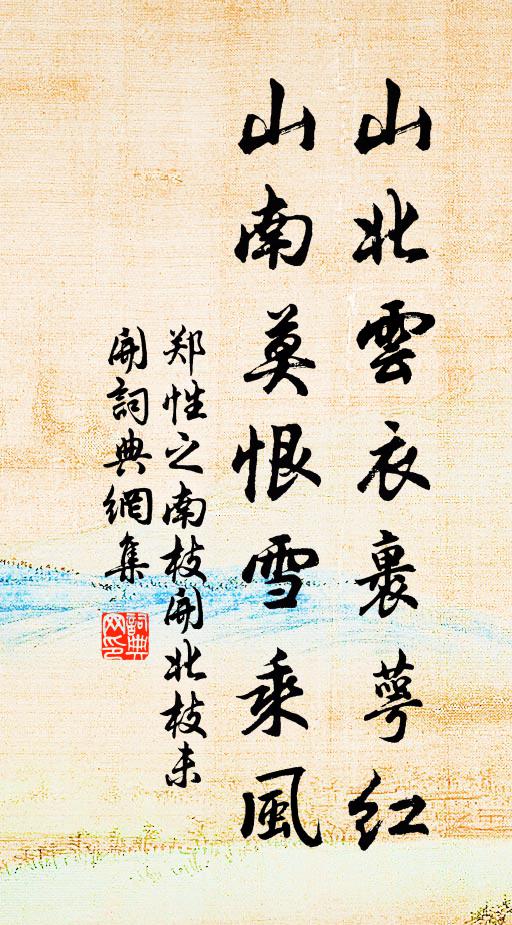 山北雲衣裹萼紅
山南莫恨雪乘風
郑性之南枝開北枝未
開詞典網集
詞典网印